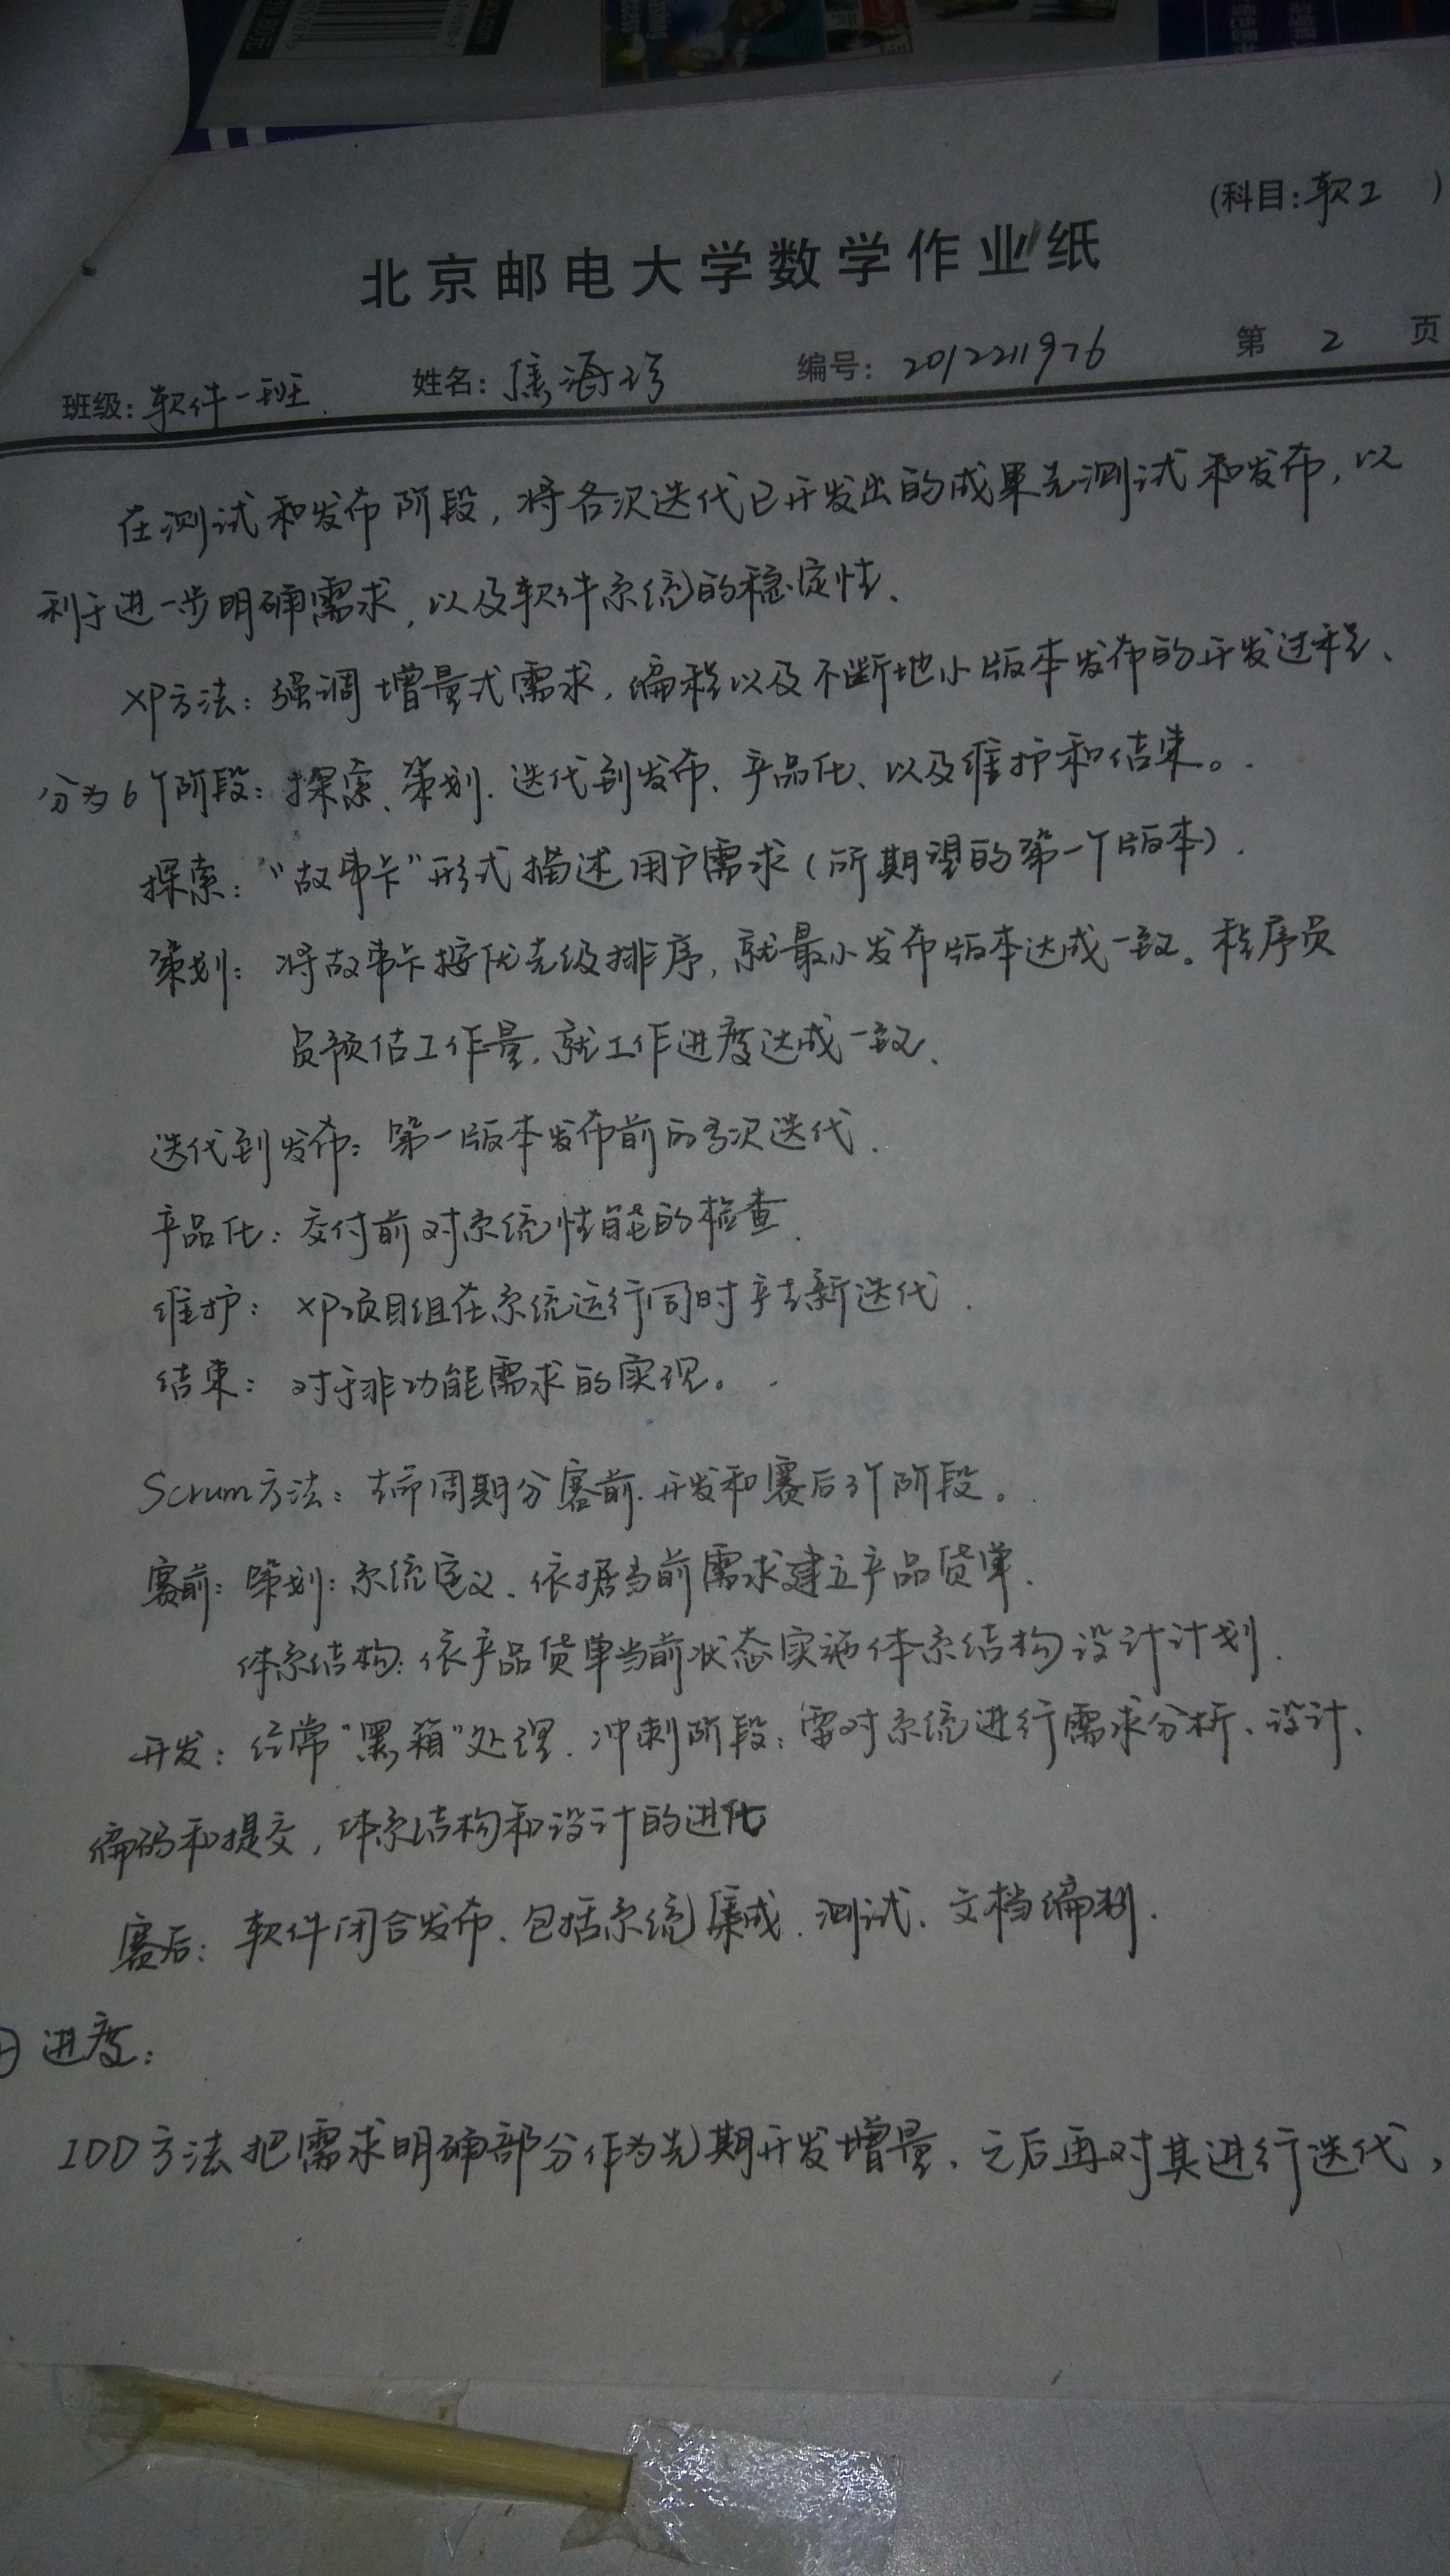 (科目:软工 )
北京邮电大学数学作业纸
班级:软件一班 姓名:焦海珍 编号:2012211976 第 2 页
在测试和发布阶段,将各次迭代已开发出的成果先测试和发布,以
利于进一步明确需求,以及软件系统的稳定性、
XP方法:强调增量式需求,编程以及不断地小版本发布的开发过程、
分为6个阶段:探索、策划、迭代到发布、产品化、以及维护和结束。
探索:"故事卡"形式描述用户需求(所期望的第一个版本).
策划:将故事卡按优先级排序,就最小发布版本达成一致。程序员
员预估工作量,就工作进度达成一致、
迭代到发布:第一版本发布前的多次迭代.
产品化:交付前对系统性能的检查.
维护:XP项目组在系统运行同时产生新迭代.
结束:对于非功能需求的实现。
Scrum方法:生命周期分赛前、开发和赛后3个阶段。
赛前:策划:系统定义、依据当前需求建立产品货单.
体系结构:依产品货单当前状态实施体系结构设计计划.
开发:经常"黑箱"处理.冲刺阶段:需对系统进行需求分析、设计、
编码和提交,体系结构和设计的进化
赛后:软件闭合发布、包括系统集成、测试、文档编制.
进度:
IDD方法把需求明确部分作为先期开发增量、之后再对其进行迭代,